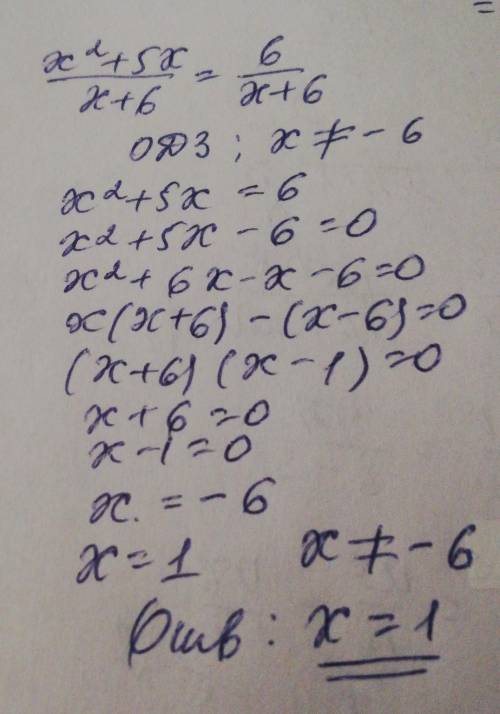 =
x²+5x / x+6 = 6 / x+6
ОДЗ ; x ≠ - 6
x²+5x = 6
x²+5x - 6 = 0
x²+6x-x-6=0
x(x+6) - (x-6)=0
(x+6)(x-1)=0
x+6=0
x-1=0
x. = -6
x=1 x≠-6
Отв: x=1